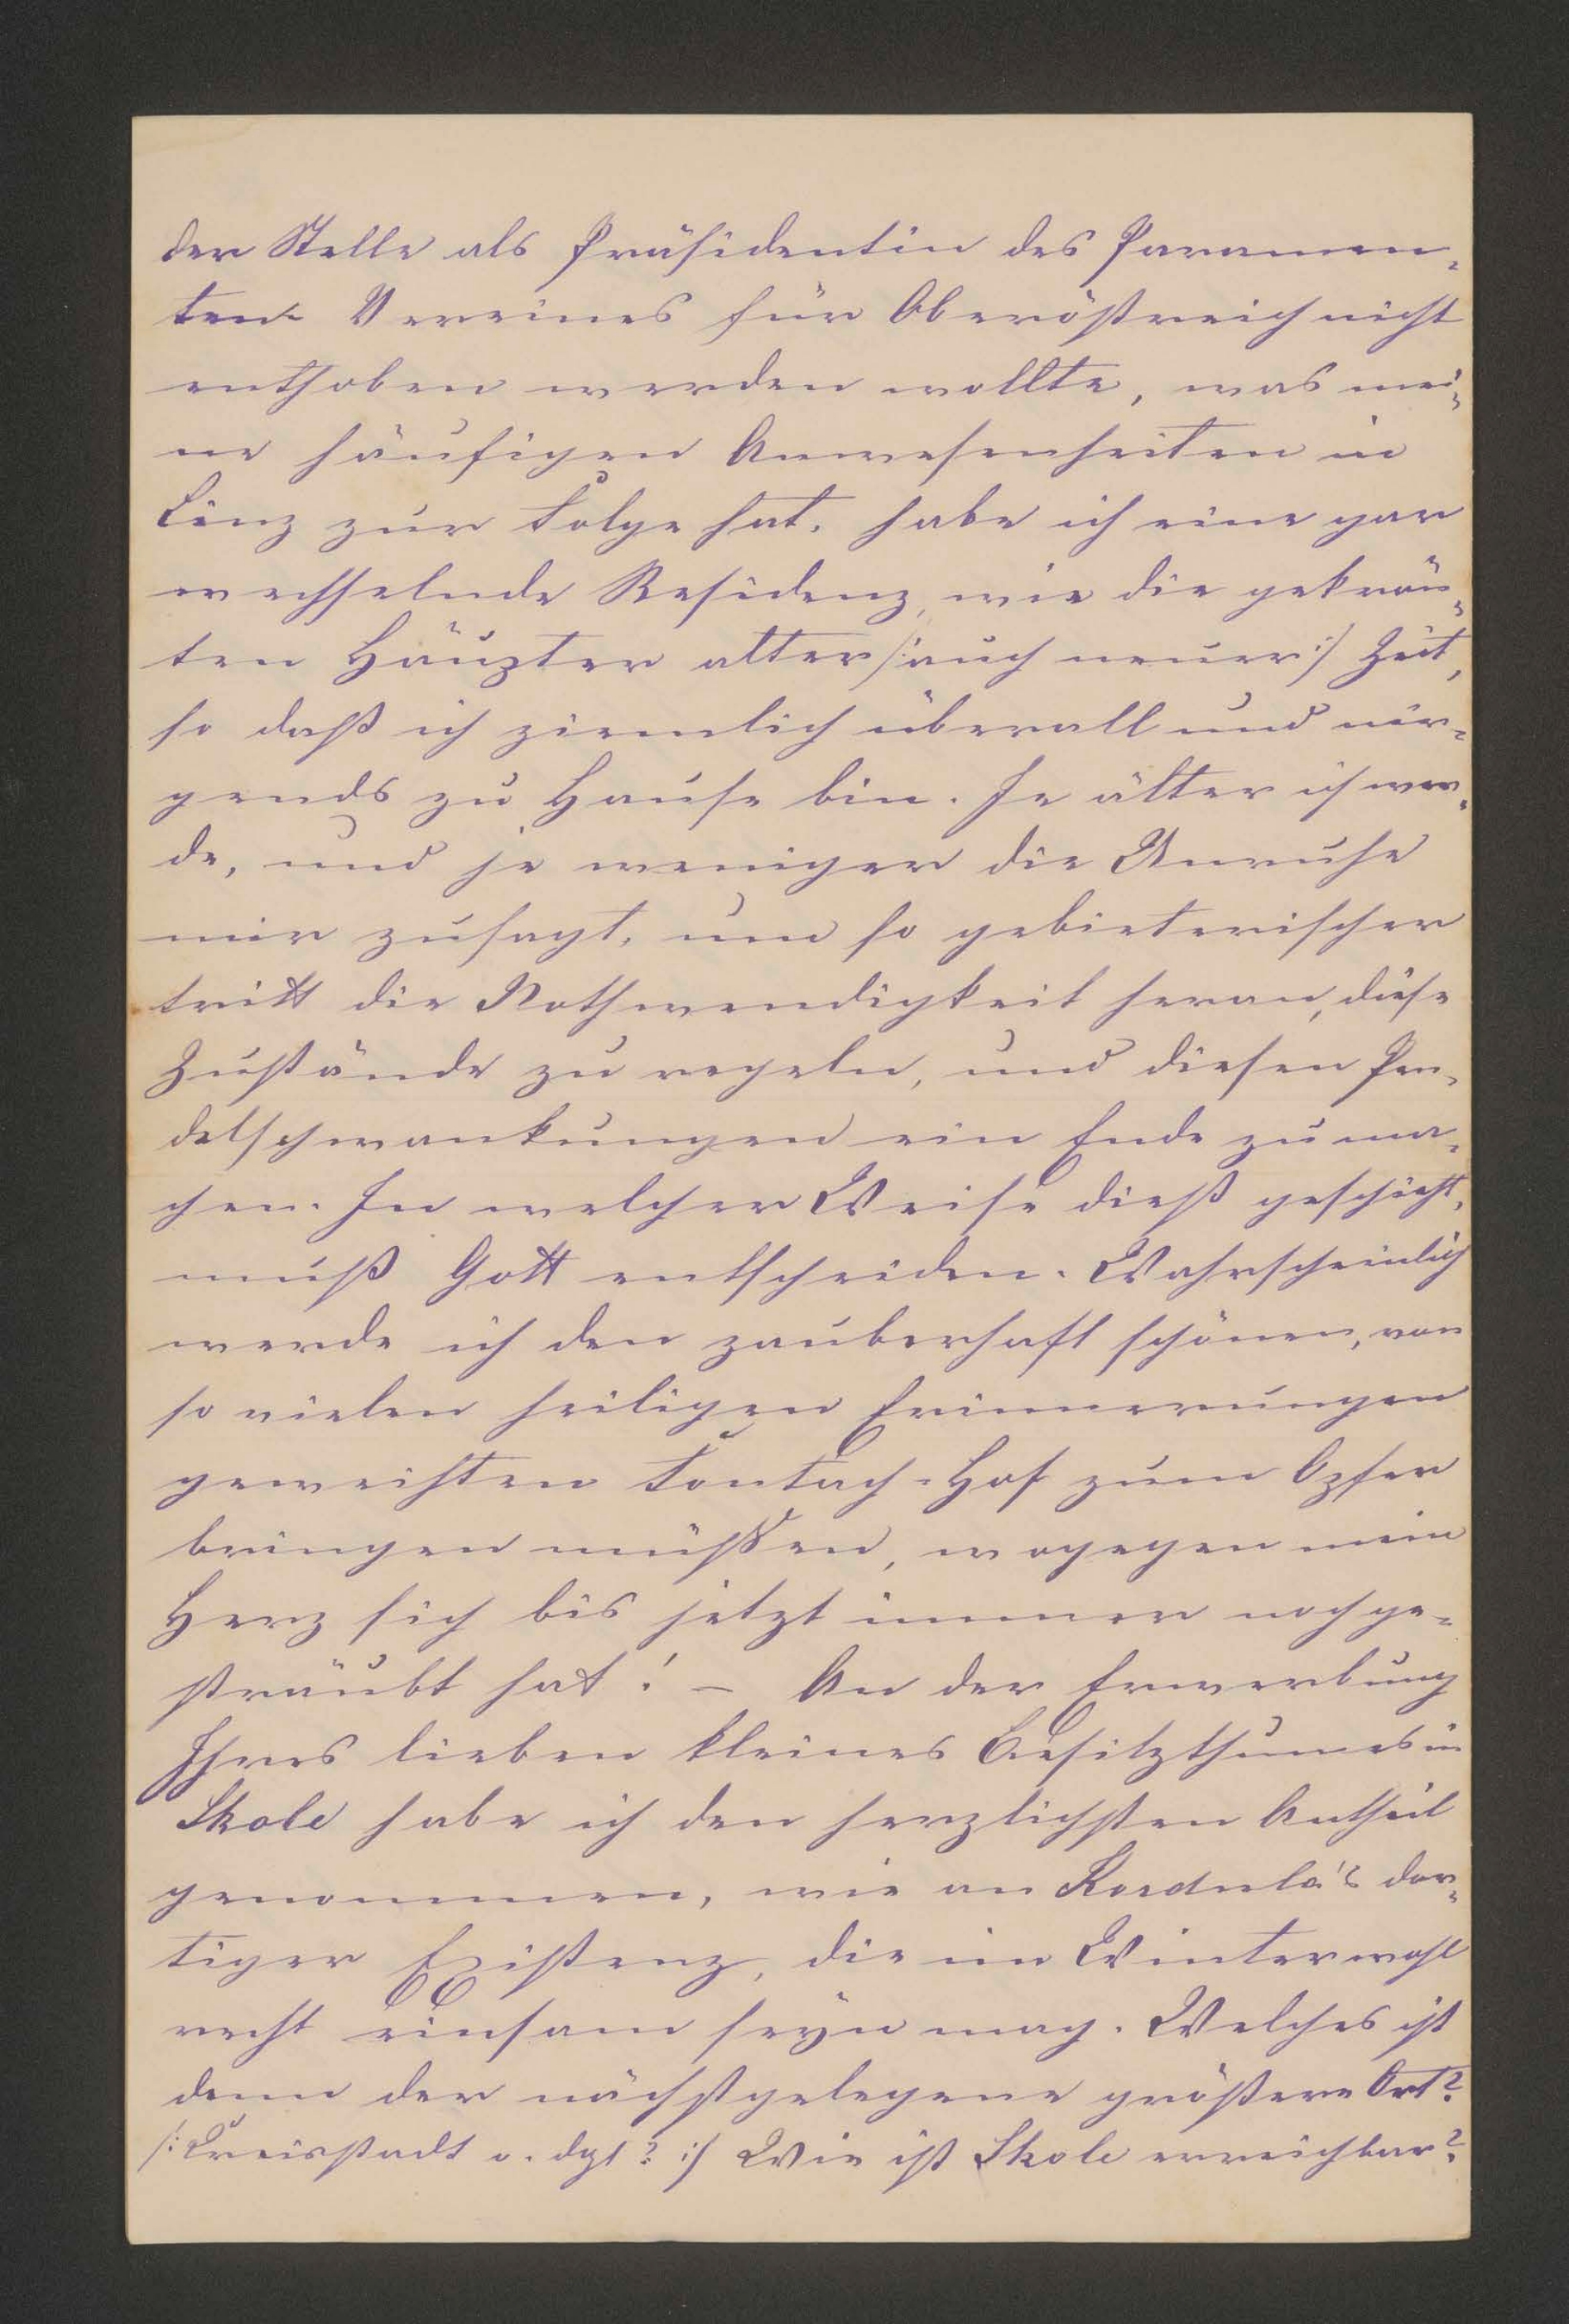 der Stelle als Präsidentin des Paramen-
ten- Vereines für Oberöstreich nicht
enthoben werden wollte, was mei-
ne häufigen Anwesenheiten in
Linz zur Folge hat, habe ich eine gar
wechselnde Residenz, wie die gekrön-
ten Häupter alter /:auch neuer:/ Zeit,
so daß ich ziemlich überall und nir-
gends zu Hause bin. Je älter ich wer-
de, und je weniger die Unruhe
mir zusagt, um so gebieterischer
tritt die Nothwendigkeit heran, diese
Zustände zu regeln, und diesen Pen-
delschwankungen ein Ende zu ma-
chen. In welcher Weise dieß geschieht,
muß Gott entscheiden. Wahrscheinlich
werde ich den zauberhaft schönen, von
so vielen heiligen Erinnerungen
geweihten Tontach-Hof zum Opfer
bringen müssen, wogegen mein
Herz sich bis jetzt immer noch ge-
sträubt hat! – An der Erwerbung
Ihres lieben kleines Besitzthumes in
Skole habe ich den herzlichsten Antheil
genommen, wie an Kordula's dor-
tiger Existenz, die im Winter wohl
recht einsam seyn mag. Welches ist
denn der nächstgelegene größere Ort?
/: Kreisstadt o. dgl? :/ Wie ist Skole erreichbar?